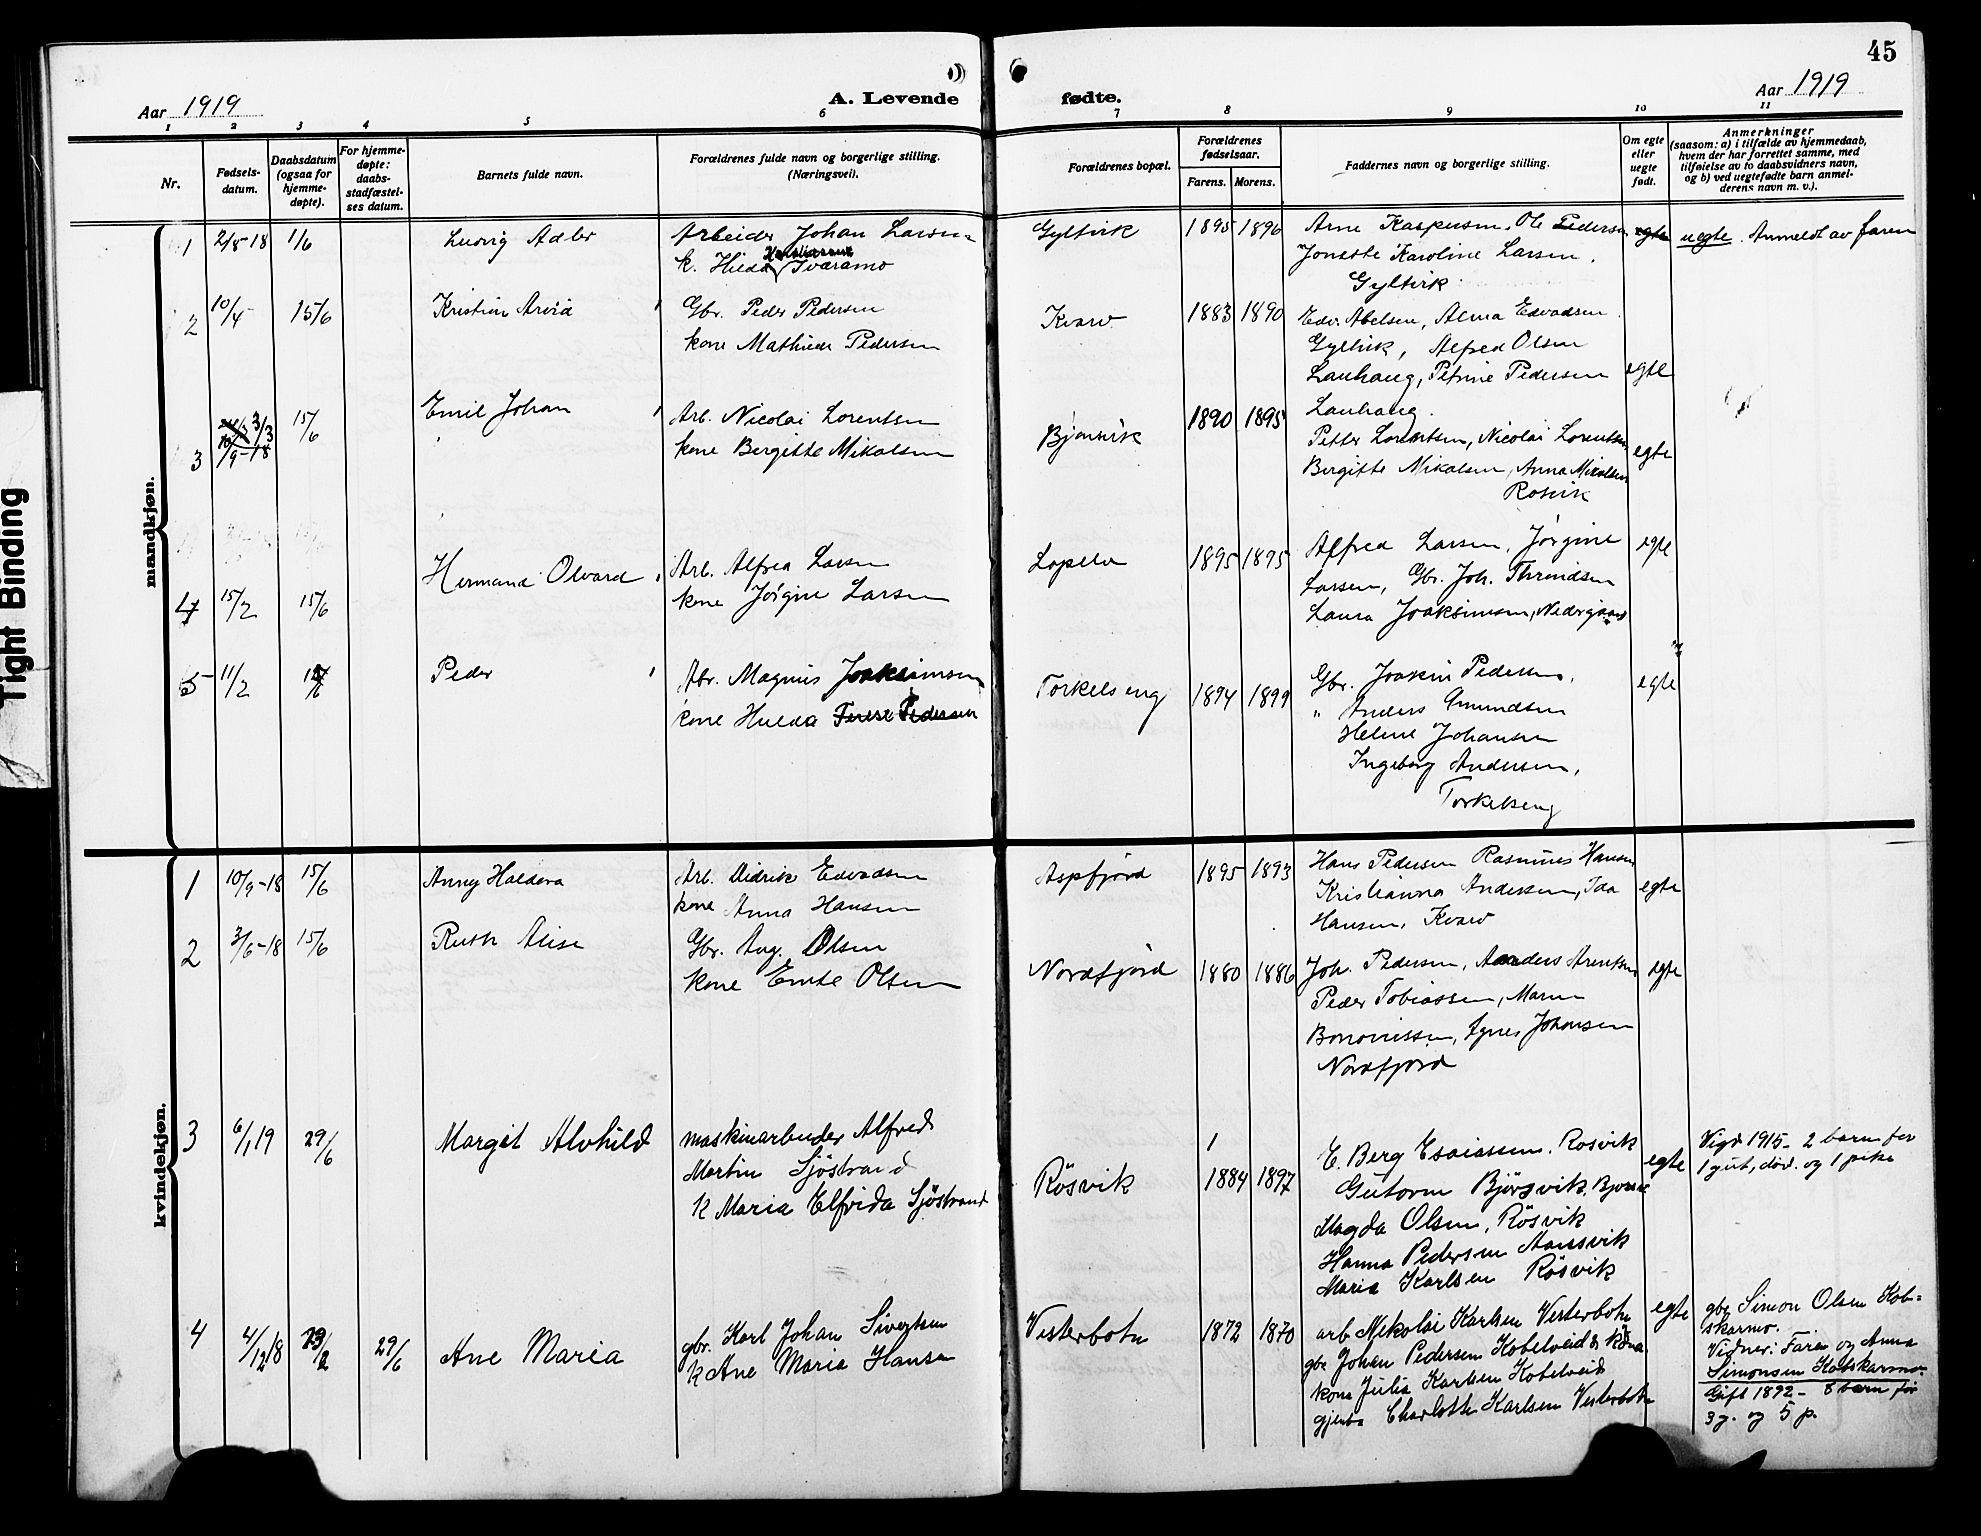 45
Aar 1919
A. Levende
fødte.
Aar 1919
1 2 3 4 5 6 7 8 9 10 11
Nr.
Fødsels-
datum.
Daabsdatum
(ogsaa for
hjemme-
døpte).
For hjemme-
døpte:
daabs-
stadfæstel-
ses datum.
Barnets fulde navn.
Forældrenes fulde navn og borgerlige stilling.
(Næringsvei).
Forældrenes bopæl.
Forældrenes
fødselsaar.
Farens. Morens.
Faddernes navn og borgerlige stilling.
Om egte
eller
uegte
født.
Anmerkninger
(saasom: a) i tilfælde av hjemmedaab,
hvem der har forrettet samme, med
tilføielse av to daabsvidners navn,
og b) ved uegtefødte barn anmel-
derens navn m. v.).
Tight Binding
mandkjøn.
1 2/8-18 1/6 Ludvig Adler Arbeider Johan Larsen Gyltvik 1895 1896 Arne Kaspersen, Ole Pedersen egte uegte. Anmeldt av faren
k. Hilda Tværamo Jonette Karoline Larsen,
Gyltvik
2 10/4 15/6 Kristian Arvid Gbr. Peder Pedersen Kvarv 1883 1890 Edv. Abelsen, Alma Edvadsen
kone Mathilde Pedersen Gyltvik, Alfred Olsen
Lauhaug, Petrine Pedersen egte
Lauhaug.
3 3/3 10/9-18 15/6 Emil Johan Arb. Nicolai Lorentsen Bjørsvik 1890 1895 Petter Lorentsen, Nicolai Lorentsen egte
kone Bergitte Mikalsen Bergitte Mikalsen, Anna Mikalsen
Rosvik
4 15/2 15/6 Hermand Olvard Arb. Alfred Larsen Lopelv 1895 1895 Alfred Larsen, Jørgine egte
kone Jørgine Larsen Larsen, Gbr. Joh. Throndsen
Laura Joakimsen, Nedergaard
5 11/2 Peder Abr. Magnus Joakimsen Torkelseng 1894 1899 Gbr. Joakim Pedersen, egte
kone Hulda Terese Pedersen " Anders Amundsen
Heline Johansen
Ingeborg Andersen,
Torkelseng
kvindekjøn.
1 10/9-18 15/6 Anny Haldora Arb. Didrik Edvadsen Aspfjord 1895 1893 Hans Pedersen Rasmus Hansen egte
kone Anna Hansen Kristianna Andersen, Ida
Hansen, Kvarv
2 3/6-18 15/6 Ruth Alise Gbr. Aug. Olsen Nordfjord 1880 1886 Joh. Pedersen, Anders Arentsen egte
kone Emte Olsen Peder Tobiassen, Maren
Bononissen, Agnes Johansen
Nordfjord
3 6/1 19 29/6 Margit Alvhild maskinarbeider Alfred Røsvik 1884 1897 E. Berg Esaiassen, Rosvik egte Vigd 1915 - 2 barn før
Martin Sjöstrand Gutorm Bjørsvik, 1 gut, død. og 1 pike
k Maria Elfrida Sjöstrand Magda Olsen, Røsvik
Hanna Pedersen Aansvik
Maria Karlsen Røsvik
4 4/12 18 29/6 Ane Maria gbr. Karl Johan Sivertsen Vesterbotn 1872 1870 arb Nikolai Karlsen Vesterbotn egte gbr Simon Olsen Kob-
k Ane Maria Hansen gbr Johan Pedersen Kobelveid & kona skarmo.
kona Julia Karlsen Kobelveid Vidner: Faren og Anna
gjente Charlotte Karlsen Vesterbotn Simonsen Kobskarmo
Gift 1892 - 8 barn før
3 g. og 5 p.